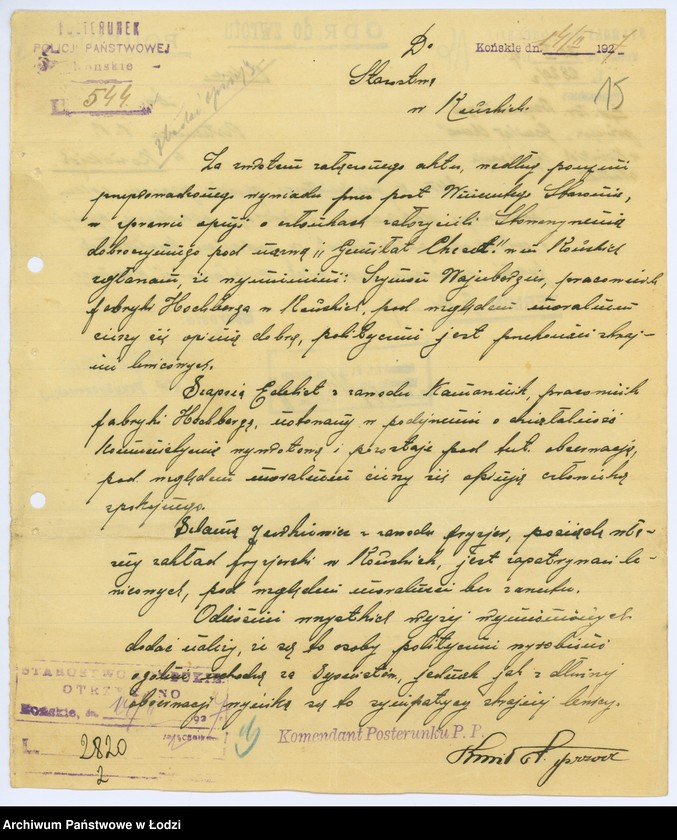 POSTERUNEK
POLICJI PAŃSTWOWEJ
Końskie
L. 544
Końskie dn. 14/II 1927
15
Do
Starostwa
w Końskich.
Za zwrotem załączonego aktu, według
przeprowadzonego wywiadu przez post.
w sprawie opinji o członkach założycieli Stowarzyszenia
dobroczynnego pod nazwą „Gemiłat Chesed" w Końskich
zgłaszam, że wymienieni: Szymon pracownik
fabryki Hochberga w Końskich, pod względem moralnem
cieszy się opinią dobrą, politycznie jest przekonań skraj-
nie lewicowych.
z zawodu Kamasznik, pracownik
fabryki Hochberga, notowany w o działalność
Komunistyczną i pozostaje pod tut. obserwacją,
pod względem moralnem cieszy się opinją człowieka
spokojnego.
z zawodu fryzjer, posiada wła-
sny zakład fryzjerski w Końskich, jest zapatrywań le-
wicowych, pod względem moralności bez zarzutu.
Odnośnie wszystkich wyżej wymienionych
dodać należy, że są to osoby politycznie wyrobione
ogólnie uchodzą za jednak jak z dłuższej
obserwacji wynika są to sympatycy skrajnej lewicy.
STAROSTWO KONECKIE
OTRZYMANO
Końskie, dn. 192
L. 2820
2
Komendant Posterunku P. P.
Archiwum Państwowe w Łodzi